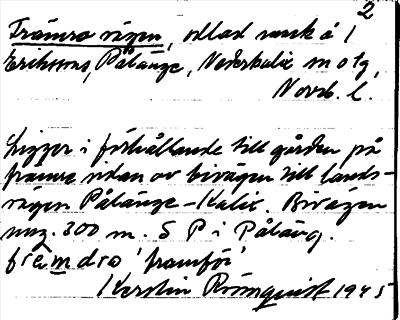 2
Främre vägen, odlad mark å 1
Erikssons, Pålänge, Nederkalix sn o tg,
Norrb. l.
Ligger i förhållande till gården på
främre sidan av bivägen till lands-
vägen Pålänge-Kalix. Bivägen
300 m. S P i Påläng.
främdro 'framför'
Kerstin Römquist 1945